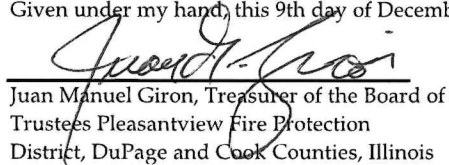 Given under my hand, this 9th day of Decemb
Juan Manuel Giron, Treasurer of the Board of
Trustees Pleasantview Fire Protection
District, DuPage and Cook Counties, Illinois